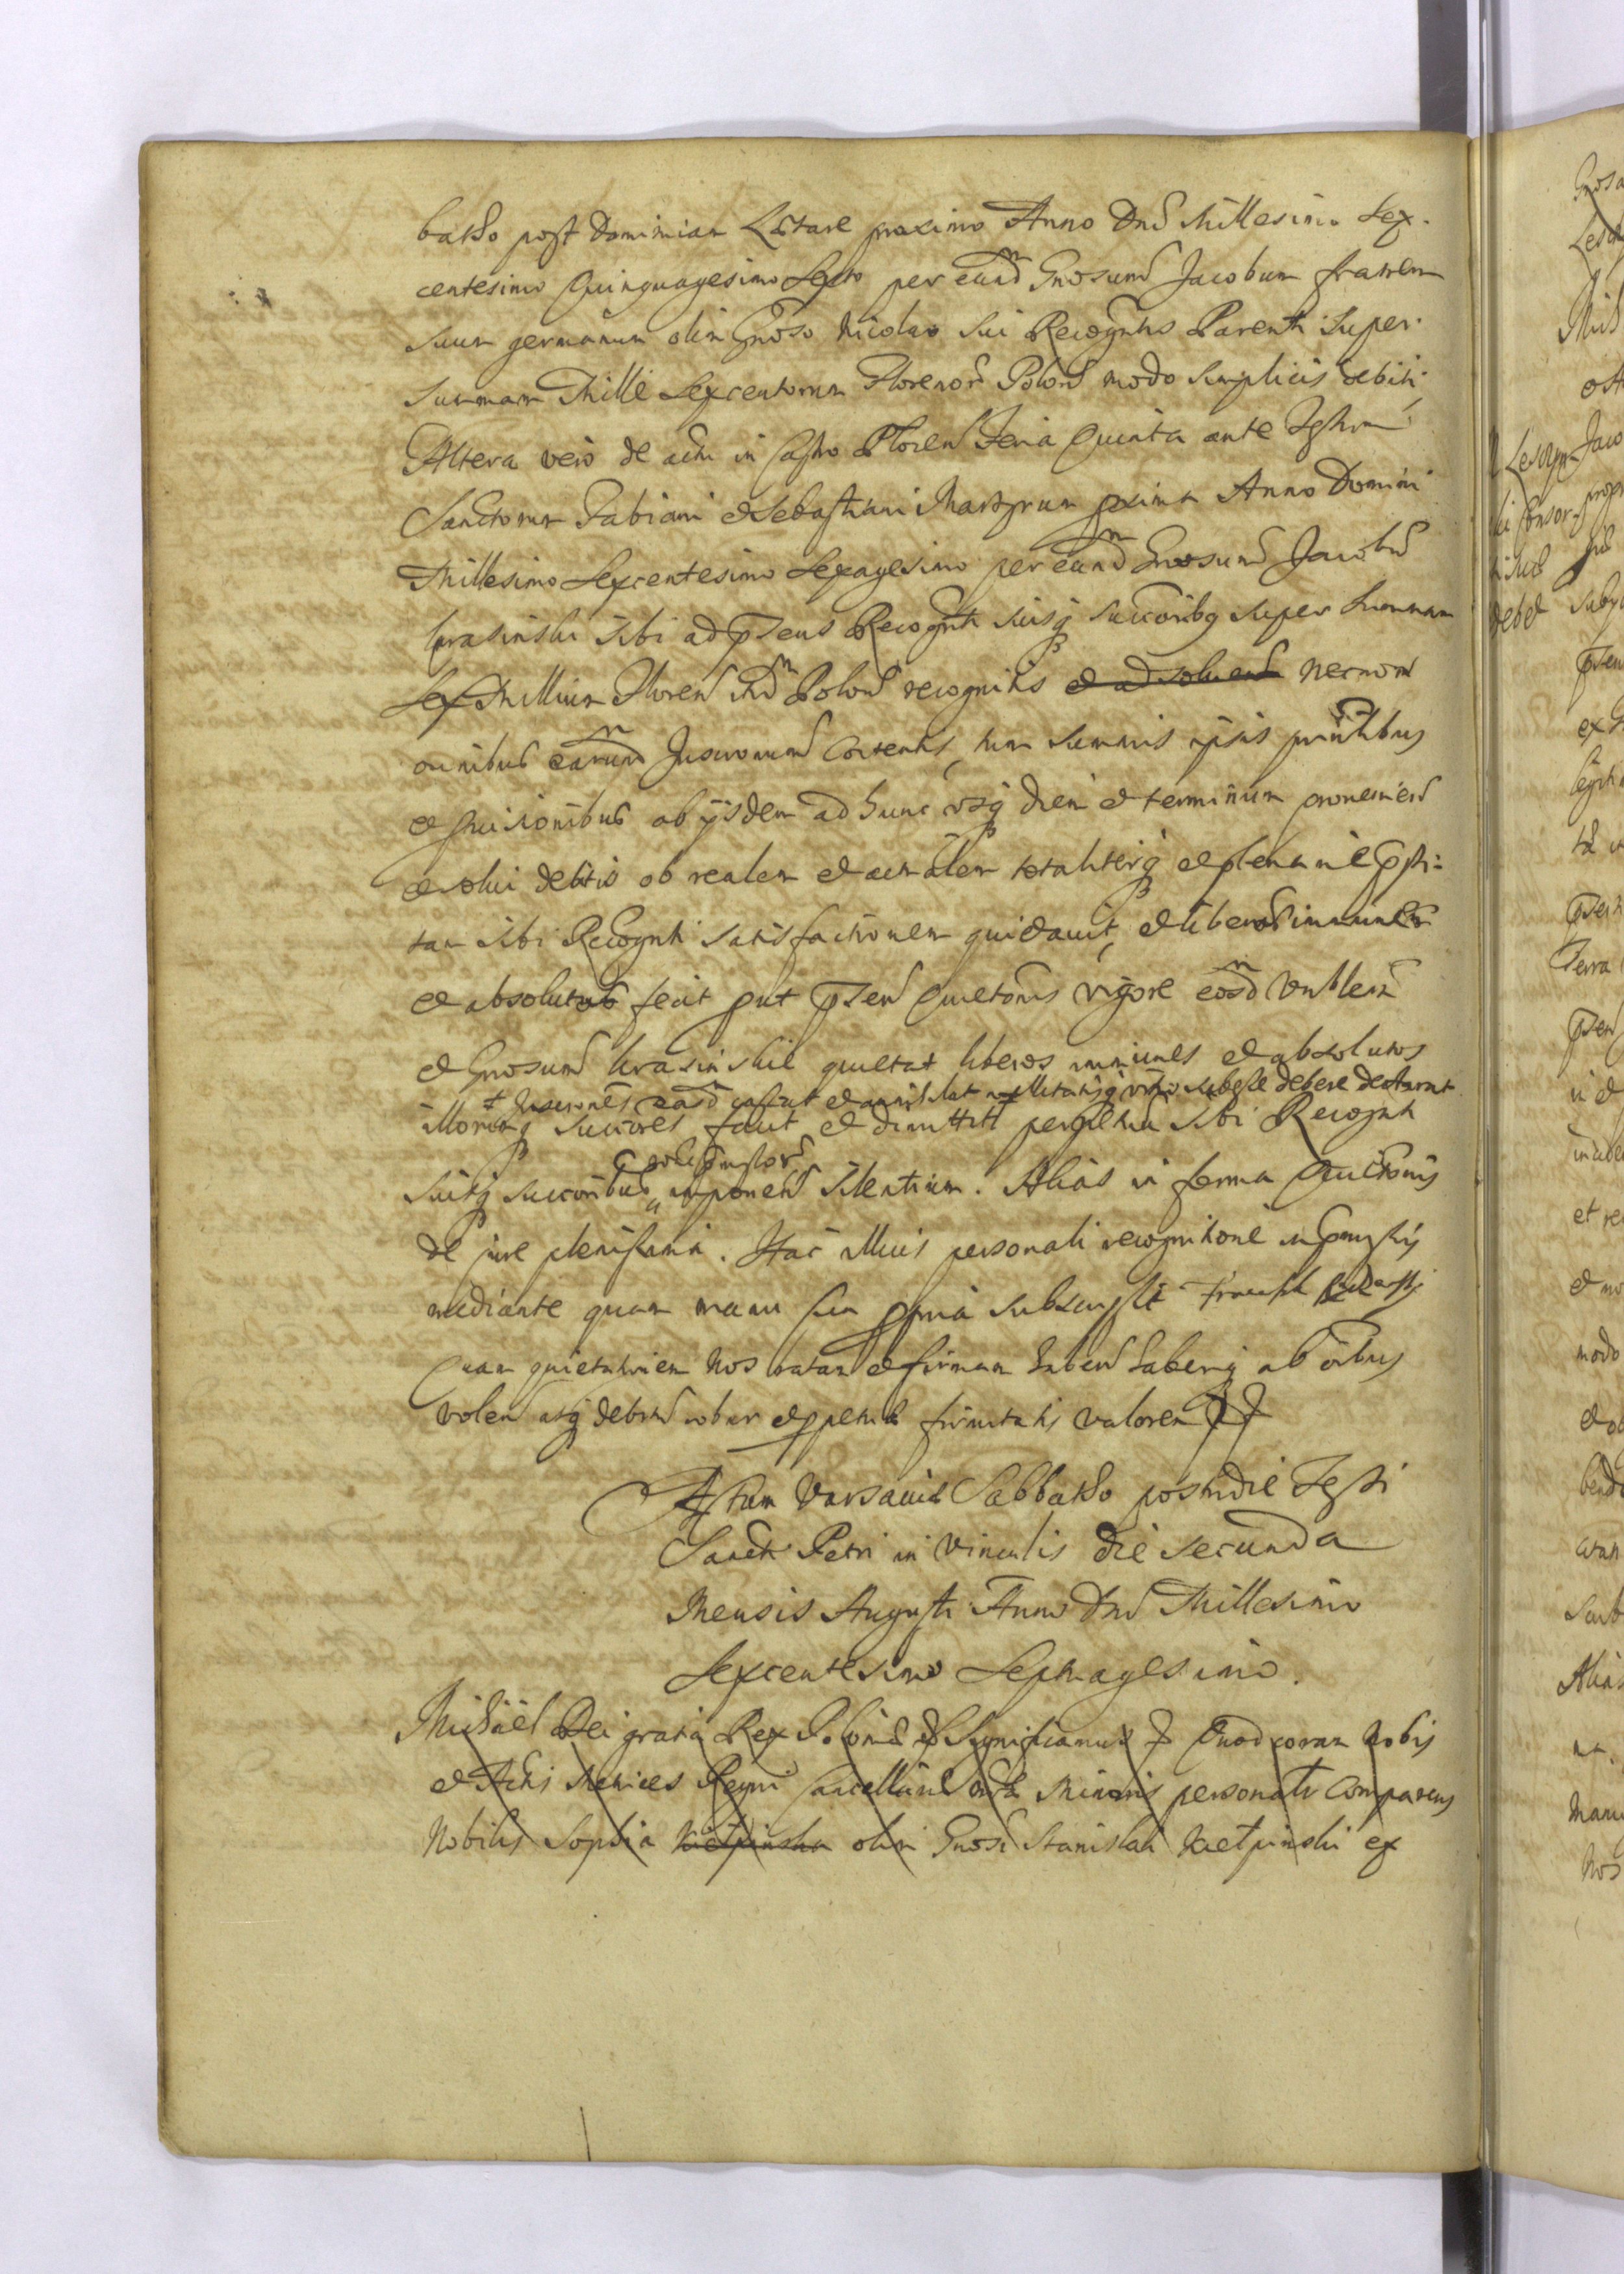 batho post Dominicam Laetare proximo Anno Dni Millesimo Sex-
centesimo Quinquagesimo Sexto per eund Gnosum Jacobum fratrem
suum germanum olim Gnoso Nicolao sui Recogntis Parenti super
summam Mille Sexcentorum Florenor Polon modo simplicis debiti,
Altera vero de actu in Castro Plocen Feria Quinta ante Festum
Sanctorum Fabiani et Sebastiani Martyrum pxima Anno Domini
Millesimo Sexcentesimo Sexagesimo per eund Gnosum Jacobu
Krasinski sibi ad psens Recognti suisq succoribq super summam
Sex Millium Floren Polon recognitis et ad solvend necnon
omnibus earund Inscrionum contentis, tum summis ipsis prntibus
et ab ijsdem ad hunc usq diem et terminum provenien
et debitis ob realem et actualem totaliterq et plenarie psti-
tam sibi Recognti satisfactionem quietavit, et liberos immunes
et absolutos fecit put psen Quietonis vigore eosd
et Gnosum Krasinskie quietat liberos immunes et absolutos
Inscriones easd cassat et annihilat nullitatisq vitio subesse debere declarat
illorumq succores facit et dimittit perpetuu sibi Recognti
suisq succoribus imponens silentium. Alias in forma Quietonis
de jure plenissima. Hac illius personali recognitione
mediante quam manu sua ppria subscripsit
Quam quietationem Nos ratam et firmam haben haberiq ab oibus
volen atq debitu robur et ppetuae firmitatis valorem
Actum Varsaviae Sabbatho postridie Festi
Sancti Petri in Vinculis die secunda
Mensis Augusti Anno Dni Millesimo
Sexcentesimo Septuagesimo.
Michael Dei gratia Rex Poloniae Significamus Quod coram Nobis
et Actis Metrices Regni Cancellariae Minoris personaliter Comparens
Nobilis Sophia Kietpinska olim Gnosi Stanislai Kietpinski ex